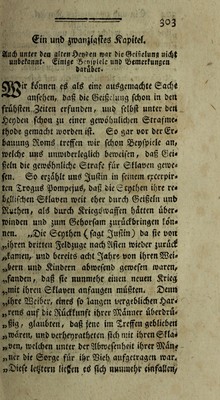 303
Ein und zwanzigstes Kapitel.
Auch unter den alten Heyden war die Geißelung nicht
unbekannt. Einige Beyspiele und Bemerkungen
darüber.
Wir können es als eine ausgemachte Sache
ansehen, daß die Geißelung schon in den
frühsten Zeiten erfunden, und selbst unter den
Heyden schon zu einer gewöhnlichen Strafme-
thode gemacht worden ist. So gar vor der Er-
bauung Roms treffen wir schon Beyspiele an,
welche uns unwiderleglich beweisen, daß Gei-
ßeln die gewöhnliche Strafe für Sklaven gewe-
sen. So erzählt uns Justin in seinem excerpir-
ten Trogus Pompejus, daß die Scythen ihre re-
bellischen Sklaven weit eher durch Geißeln und
Ruthen, als durch Kriegswaffen hätten über-
winden und zum Gehorsam zurückbringen kön-
nen. „Die Scythen (sagt Justin) da sie von
„ihren dritten Feldzuge nach Asien wieder zurück
„kamen, und bereits acht Jahre von ihren Wei-
„bern und Kindern abwesend gewesen waren,
„fanden, daß sie nunmehr einen neuen Krieg
„mit ihren Sklaven anfangen müßten. Denn
„ihre Weiber, eines so langen vergeblichen Har-
„rens auf die Rückkunft ihrer Männer überdrü-
„ßig, glaubten, daß jene im Treffen geblieben
„wären, und verheyratheten sich mit ihren Skla-
„ven, welchen unter der Abwesenheit ihrer Män-
„ner die Sorge für ihr Vieh aufgetragen war.
„Diese letztern ließen es sich nunmehr einfallen,